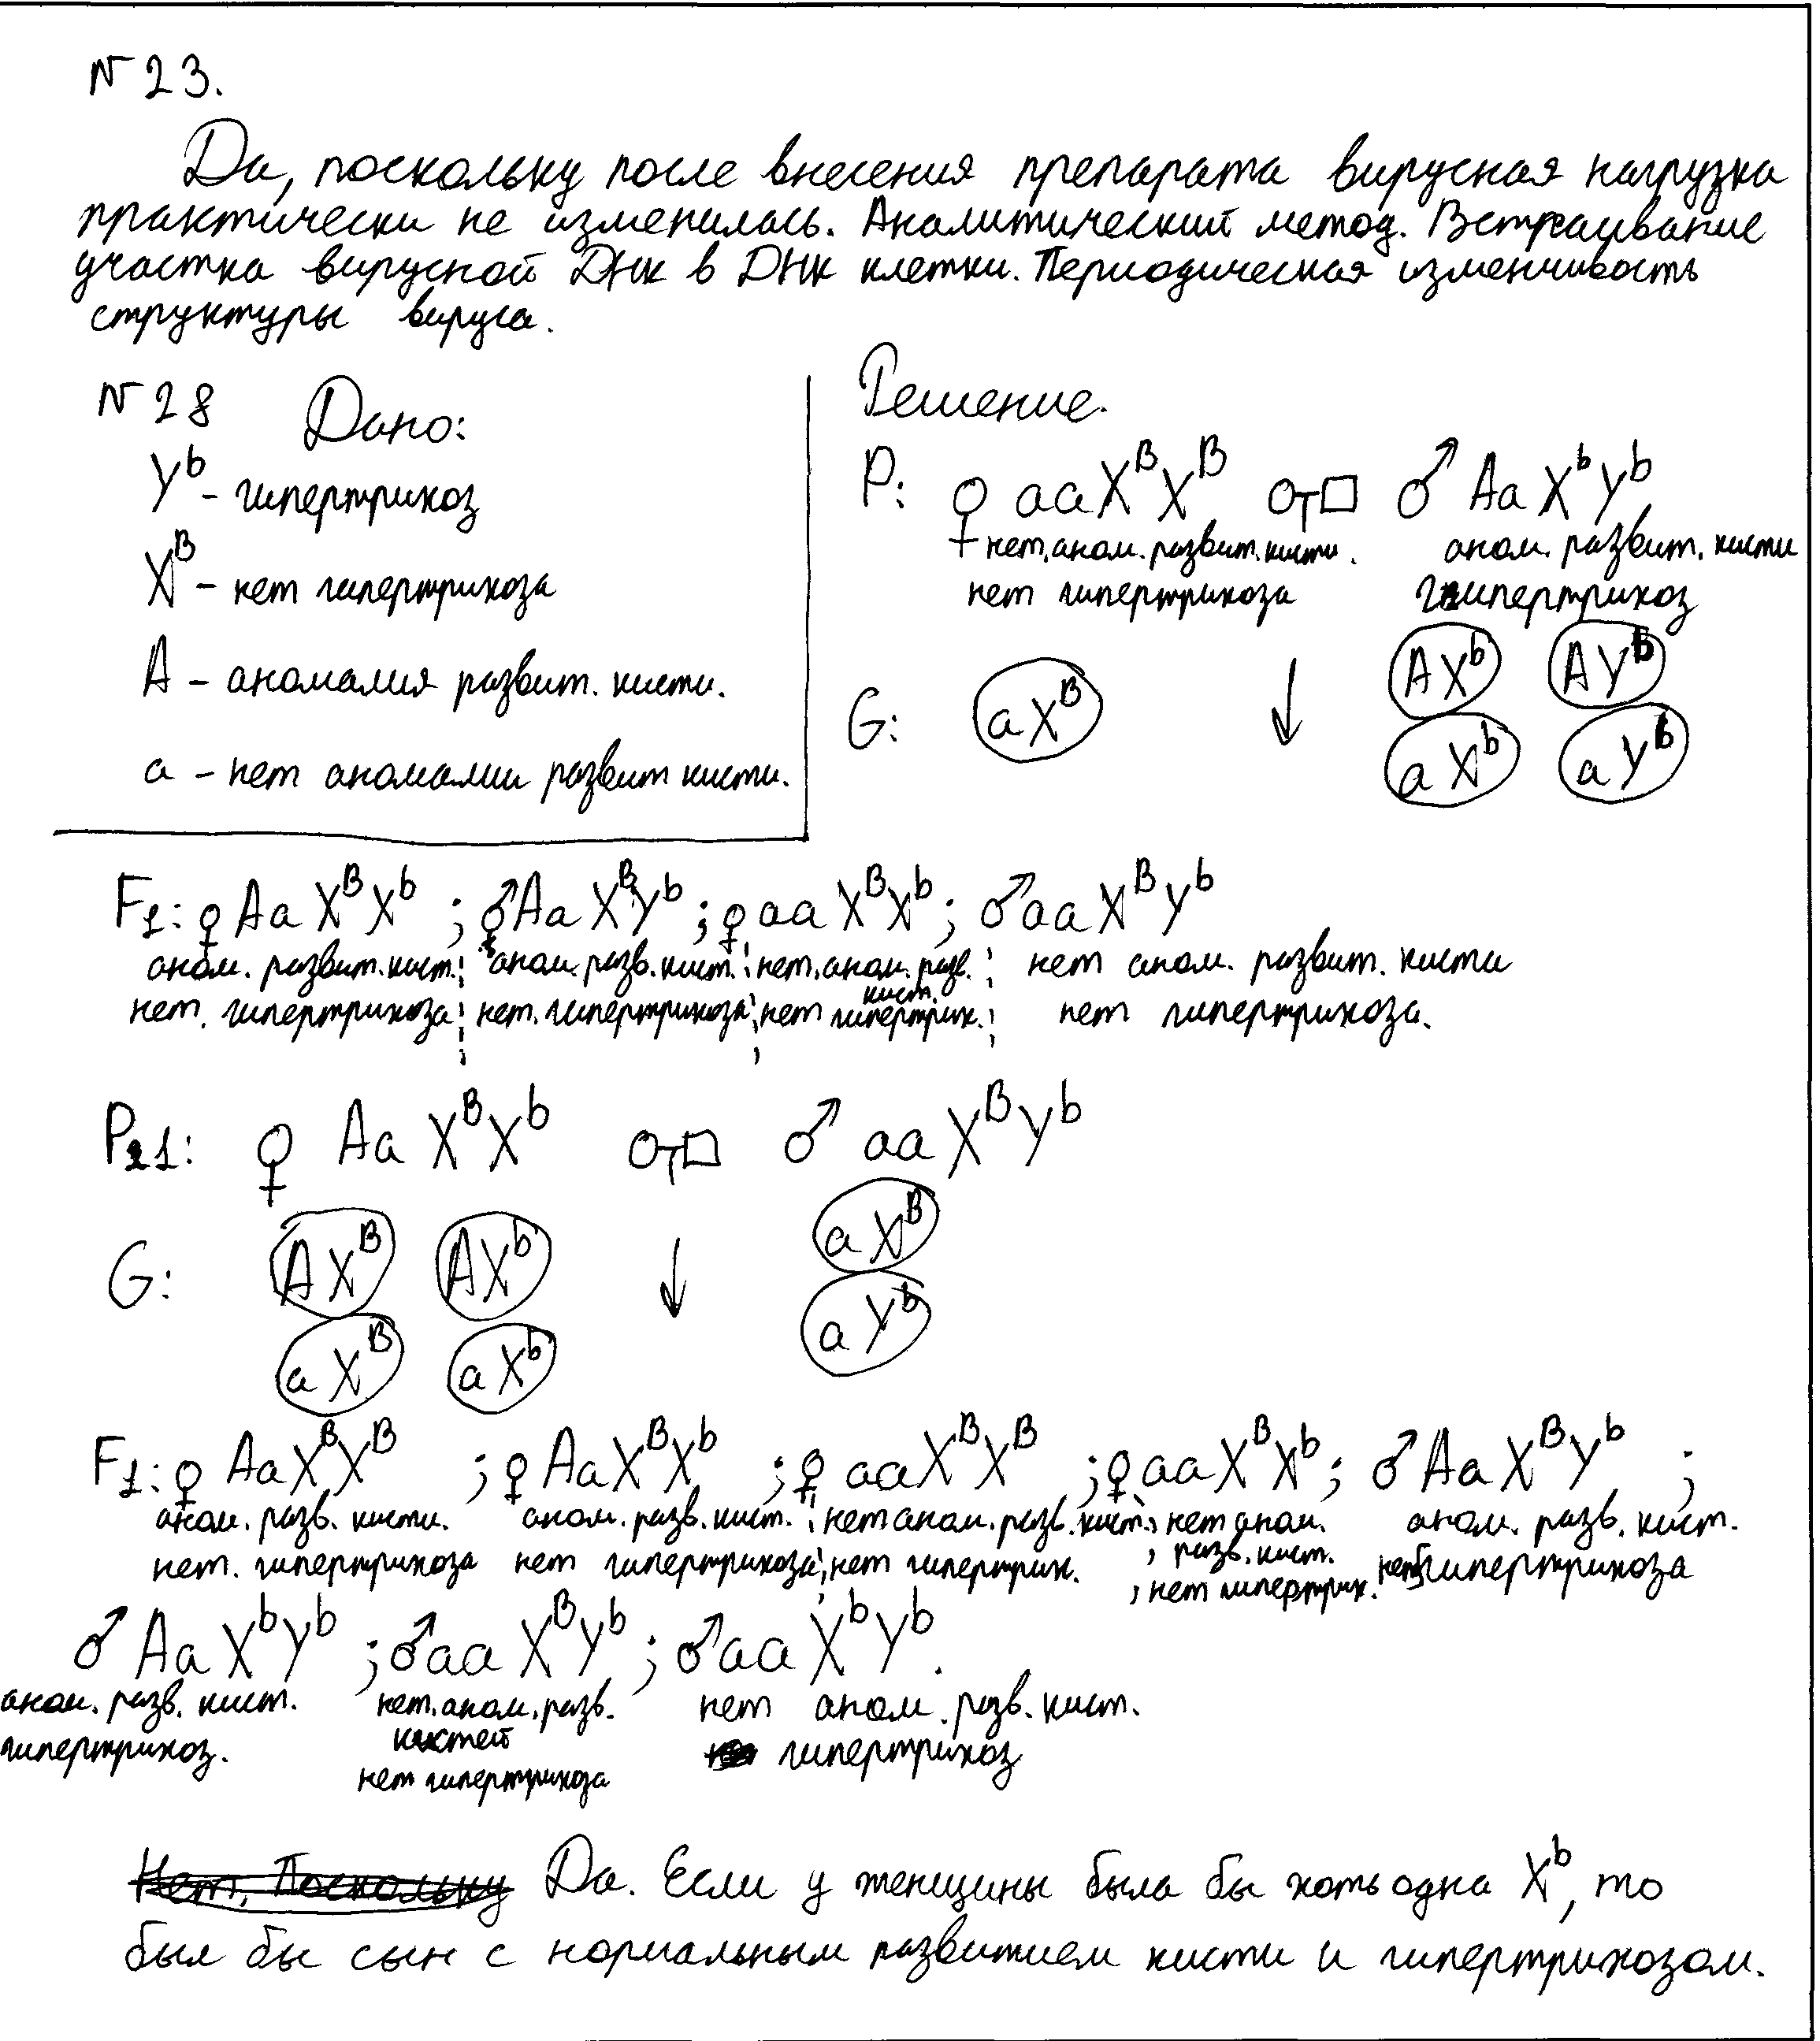 N 23.
Да, поскольку после внесения препарата вирусная нагрузка
практически не изменилась. Аналитический метод. Встраивание
участка вирусной ДНК в ДНК клетки. Периодическая изменчивость
структуры вируса.
N 28 Дано:
Y^b - гипертрихоз
X^B - нет гипертрихоза
A - аномалия развит. кисти.
a - нет аномалии развит кисти.
Решение.
P: ♀ aaX^BX^B ♂ AaX^bY^b
нет. аном. развит. кисти. аном. развит. кисти
нет гипертрихоза гипертрихоз
G: aX^B ↓ AX^b AY^b
aX^b aY^b
F1: ♀ AaX^BX^b ; ♂AaX^BY^b ; ♀aaX^BX^b ; ♂aaX^BY^b
аном. развит. кист. ; аном. разв. кист. ; нет. аном. разв. кист. ; нет аном. развит. кисти
нет. гипертрихоза ; нет. гипертрихоза ; нет гипертрих. ; нет гипертрихоза.
P1: ♀ AaX^BX^b ♂ aaX^BY^b
G: AX^B AX^b ↓ aX^B
aX^B aX^b aY^b
F1: ♀ AaX^BX^B ; ♀ AaX^BX^b ; ♀ aaX^BX^B ; ♀aaX^BX^b ; ♂ AaX^BY^b ;
аном. разв. кисти. аном. разв. кист. ; нет аном. разв. кист. ; нет аном. разв. кист. аном. разв. кист.
нет. гипертрихоза нет гипертрихоза ; нет гипертрих. ; нет гипертрих. нет гипертрихоза
♂ AaX^bY^b ; ♂aaX^BY^b ; ♂aaX^bY^b.
аном. разв. кист. нет. аном. разв. кистей нет аном. разв. кист.
гипертрихоз. нет гипертрихоза гипертрихоз
Нет, Поскольку Да. Если у женщины была бы хоть одна X^b, то
был бы сын с нормальным развитием кисти и гипертрихозом.